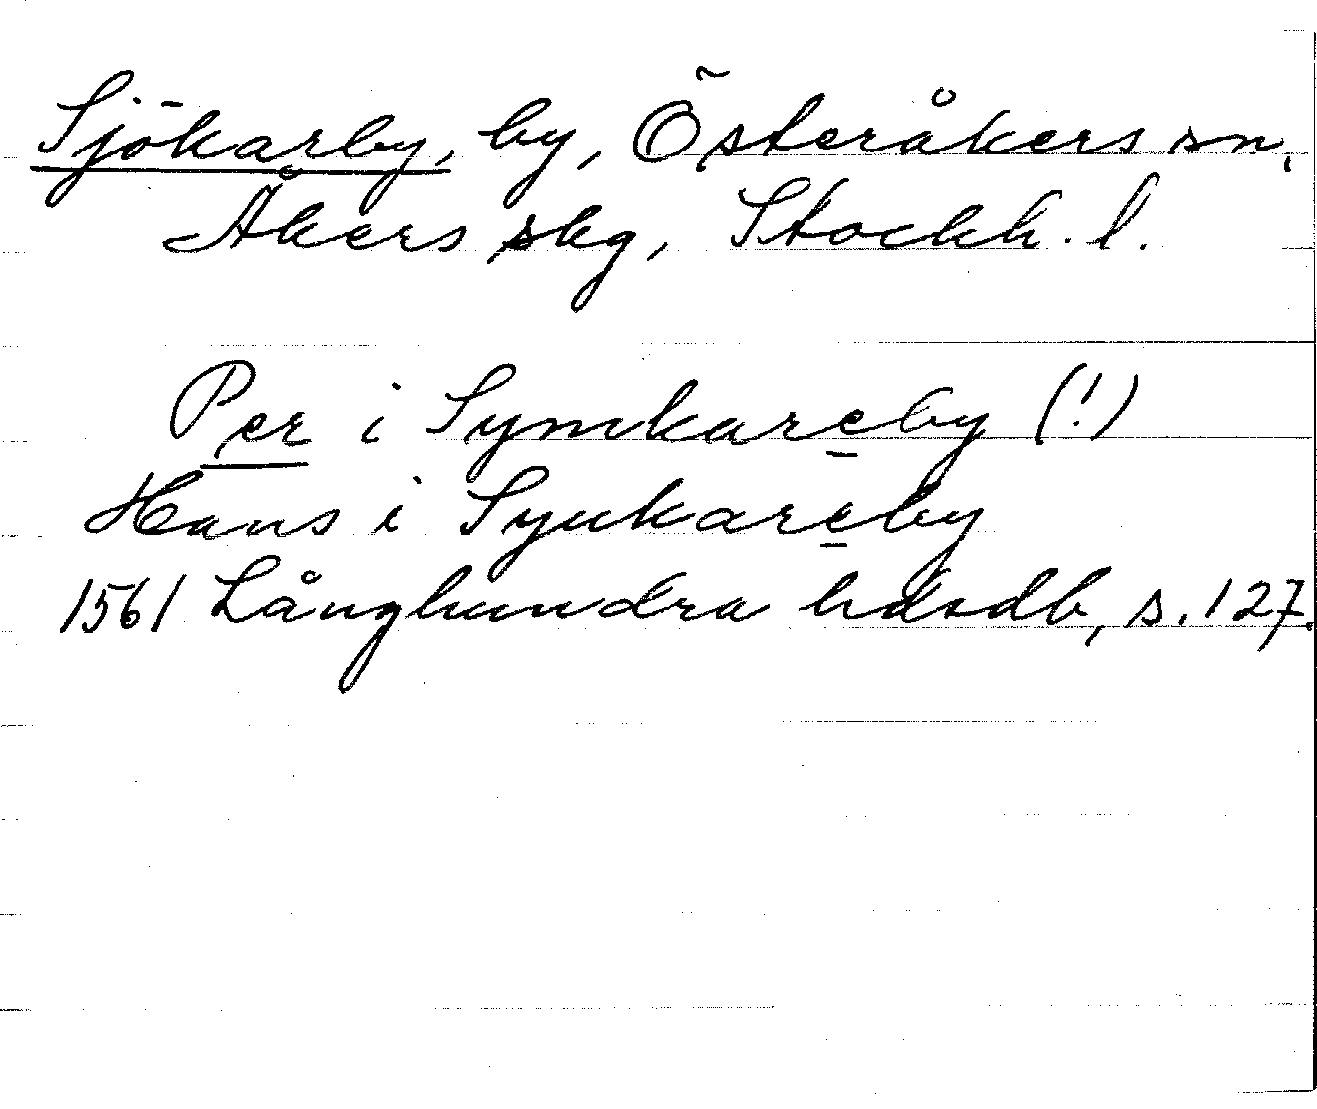 Sjökarby, by, Österåkers sn,
Åkers skg, Stockh. l.
Per i Symkareby (!)
Hans i Syukareby
1561 Långhundra hdsdb, s. 127.